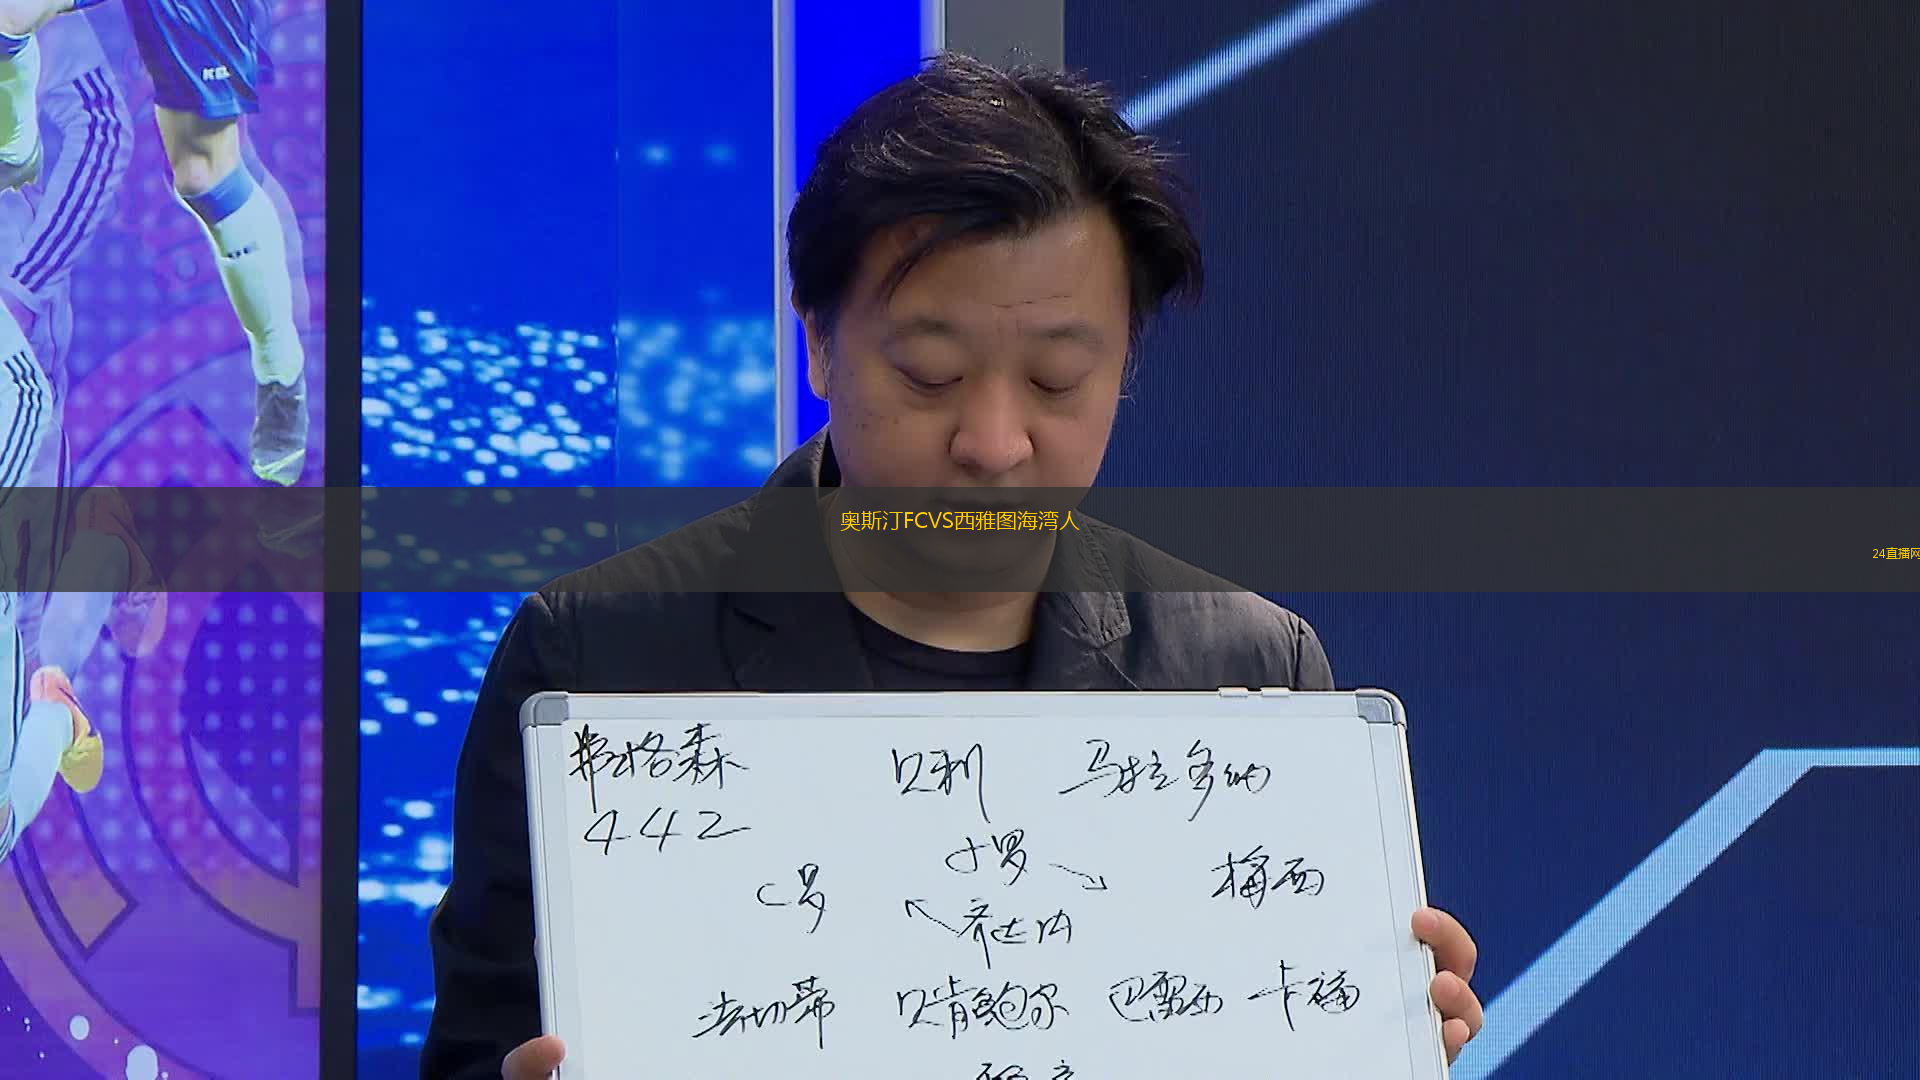 奥斯汀FCVS西雅图海湾人
24直播网
弗格森 贝利 马拉多纳
442
小罗
C罗 梅西
齐达内
法切蒂 贝肯鲍尔 巴雷西 卡福